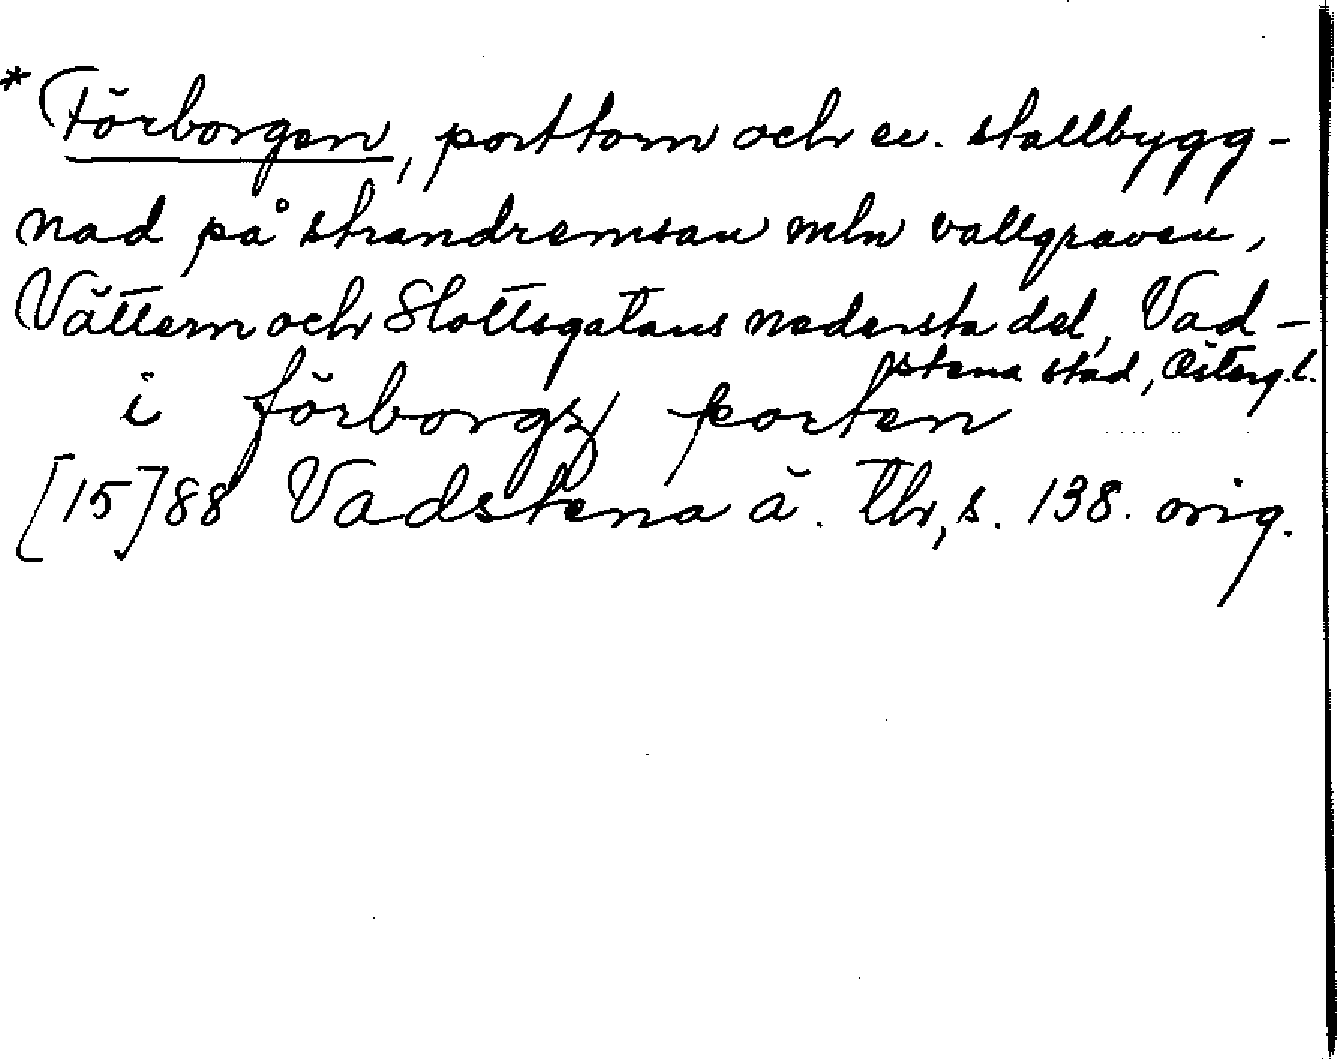 * Förborgen, porttorn och ev. stallbygg-
nad på strandremsan mln vallgraven,
Vättern och Slottsgatans nedersta del, Vad-
stena stad, Österg. l.
i förborgz porten
[15]88 Vadstena ä. Thr, s. 138. orig.